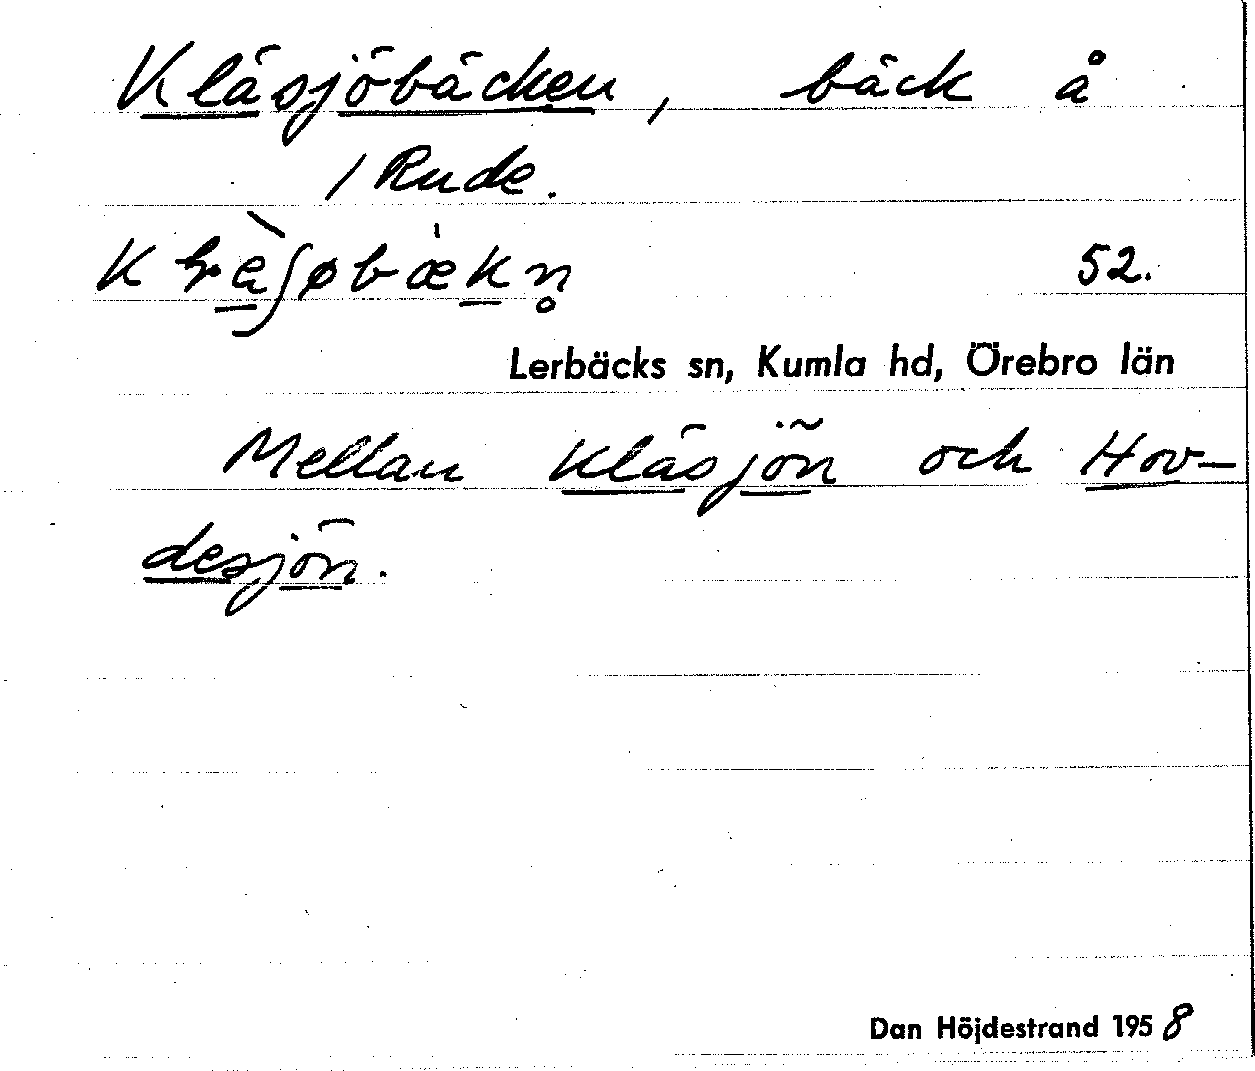 Kläsjöbäcken, bäck å
1 Rude.
52.
Lerbäcks sn, Kumla hd, Örebro län
Mellan Kläsjön och Hov-
desjön.
Dan Höjdestrand 1958